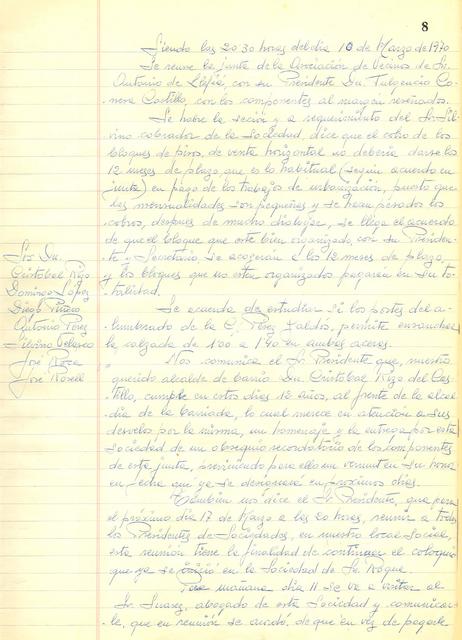 8
Siendo las 20'30 horas del día 10 de Marzo de 1970
Se reune la Junta de la Asociación de Vecinos de Sn.
Antonio de Lofiá, con su Presidente Dn. Fulgencio Co-
nesa Castillo, con los componentes al margen reseñados.
Se habre la seción y a requerimiento del Sr. Sil-
vino cobrador de la Sociedad, dice que el cobro de los
bloques de pisos, de venta horizontal no debería darse los
12 meses de plazo, que es lo habitual (según acuerdo en
junta) en pago de los trabajos de urbanización, puesto que
las mensualidades son pequeñas y se hacen pesados los
cobros, despues de mucho dialogar, se llega al acuerdo
de que el bloque que este bien organizado, con su Presiden-
te y Secretario, se acogeran a los 12 meses de plazo,
y los bloques que no esten organizados pagarán en su to-
talidad.
Srs. Dn.
Cristobal Rizo
Domingo López
Diego Piñero
Antonio Pérez
Silvino Velasco
José Roca
José Rosell
Se acuerda de estudiar si los postes del a-
lumbrado de la C/ Pérez Xaldós, permite ensanchar
la calzada de 1'00 a 1'40 en ambas aceras.
Nos comunica el Sr. Presidente que, nuestro
querido alcalde de barrio Dn. Cristobal Rizo del Cas-
tillo, cumple en estos dias 12 años, al frente de la alcal-
dia de la barriada, lo cual merece en atención a sus
desvelos por la misma, un homenaje y la entrega por esta
Sociedad de un obsequio recordatorio de los componentes
de esta junta, previniendo para ello un vermut en su honor
en fecha que ya se designará en proximos dias.
Tambien nos dice el Sr. Presidente, que para
el próximo dia 17 de Marzo a las 20 horas, reunir a todos
los Presidentes de Sociedades, en nuestro local Social,
esta reunión tiene la finalidad de continuar el coloquio
que ya se inició en la Sociedad de Sn. Roque.
Para mañana dia 11 se va a visitar al
Sr. Suarez, abogado de esta Sociedad y comunicar-
le, que en reunión se acordó, de que en vez de pagarle